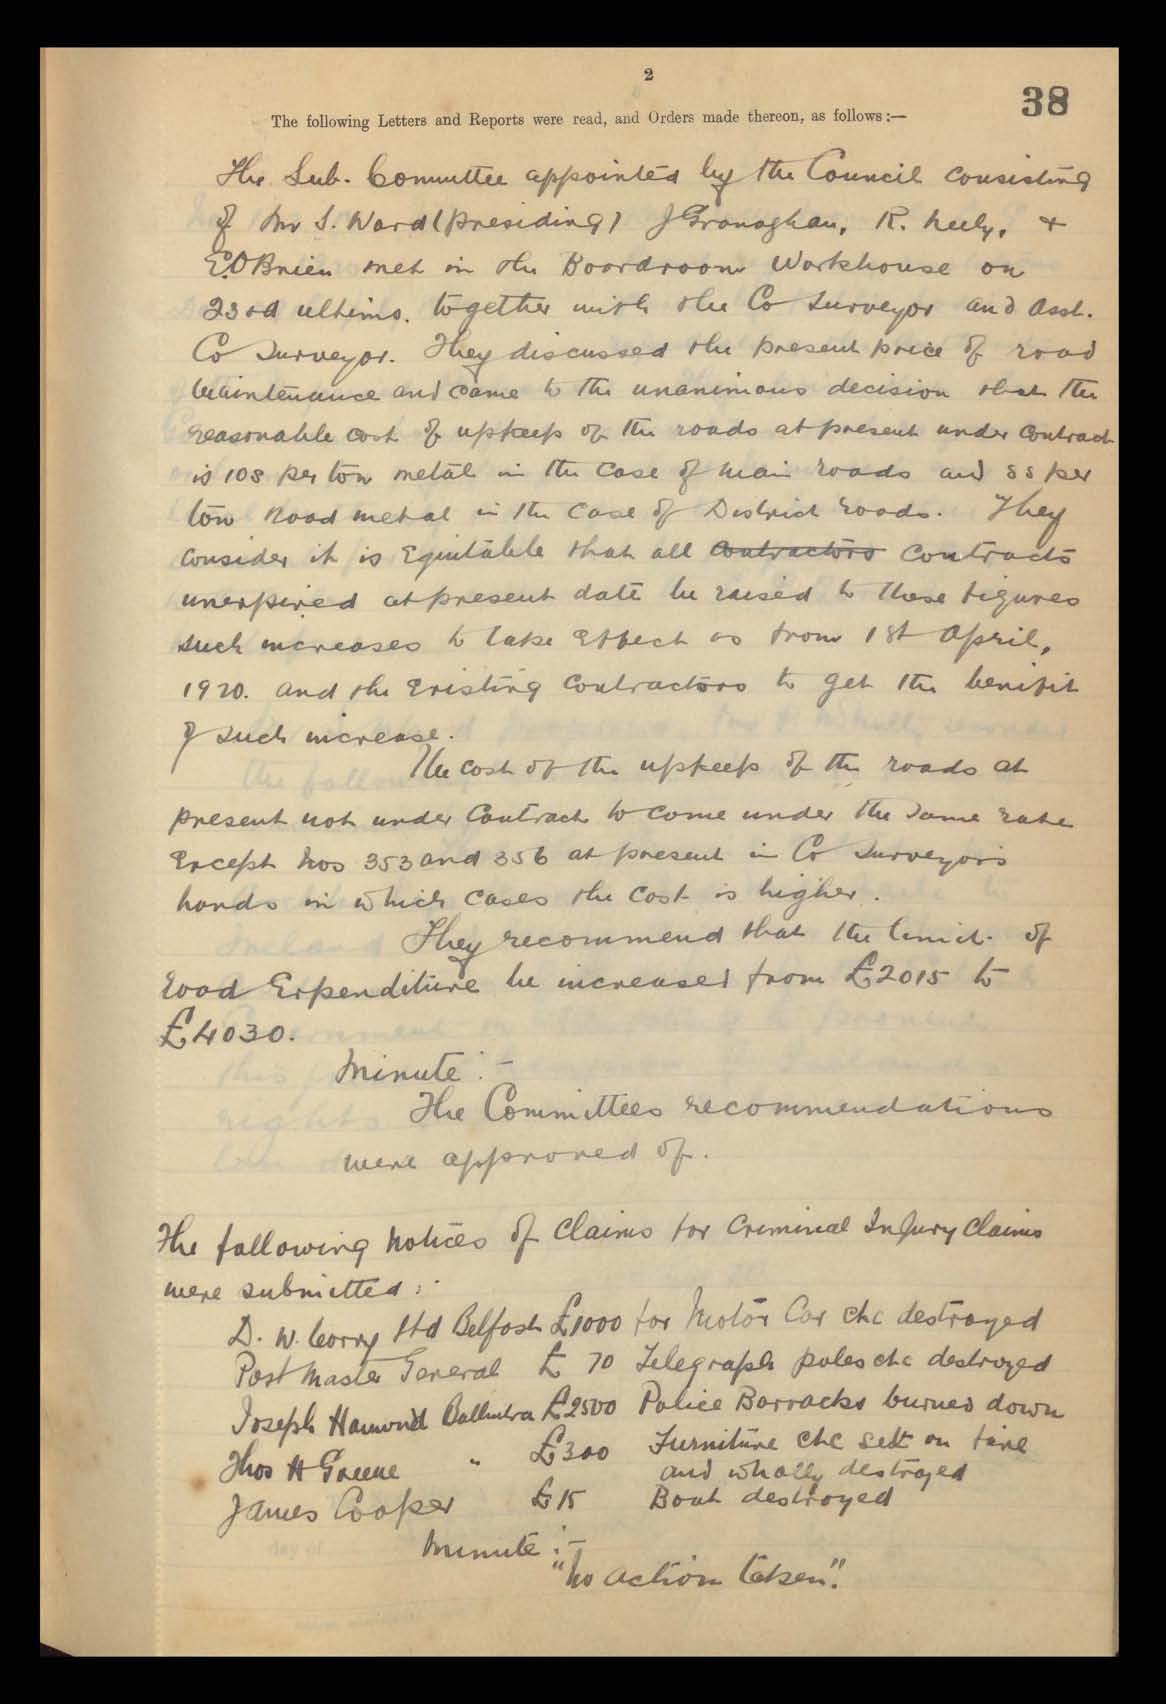 2
38
The following Letters and Reports were read, and Orders made thereon, as follows:—
The Sub. Committee appointed by the Council consisting
of Mr S. Ward (presiding) J Granaghan, R. Neely, +
E. O Brien met in the Boardroom Workhouse on
23rd ultimo. together with the Co Surveyor and Asst.
Co Surveyor. They discussed the present price of road
maintenance and came to the unanimous decision that the
reasonable cost of upkeep of the roads at present under contract
is 10s per ton metal in the case of main roads and 8s per
ton road metal in the case of District roads. They
consider it is Equitable that all contractors contracts
unexpired at present date be raised to these figures
such increases to take Effect as from 1st April,
1920. and the Existing contractors to get the benifit
of such increase.
The cost of the upkeep of the roads at
present not under Contract to come under the same rate
Except Nos 353 and 356 at present in Co Surveyor's
hands in which cases the cost is higher.
They recommend that the limit of
road Expenditure be increased from £2015 to
£4030.
Minute :-
The Committees recommendations
were approved of.
The following Notices of Claims for Criminal Injury Claims
were submitted :
D. W. Corry Ltd Belfast £1000 for Motor Car etc destroyed
Post Master General £ 70 Telegraph poles etc destroyed
Joseph Hammond Ballintra £2500 Police Barracks burned down
Thos H Greene " £300 Furniture etc set on fire
and wholly destroyed
James Cooper £15 Boat destroyed
Minute :-
"No action taken".